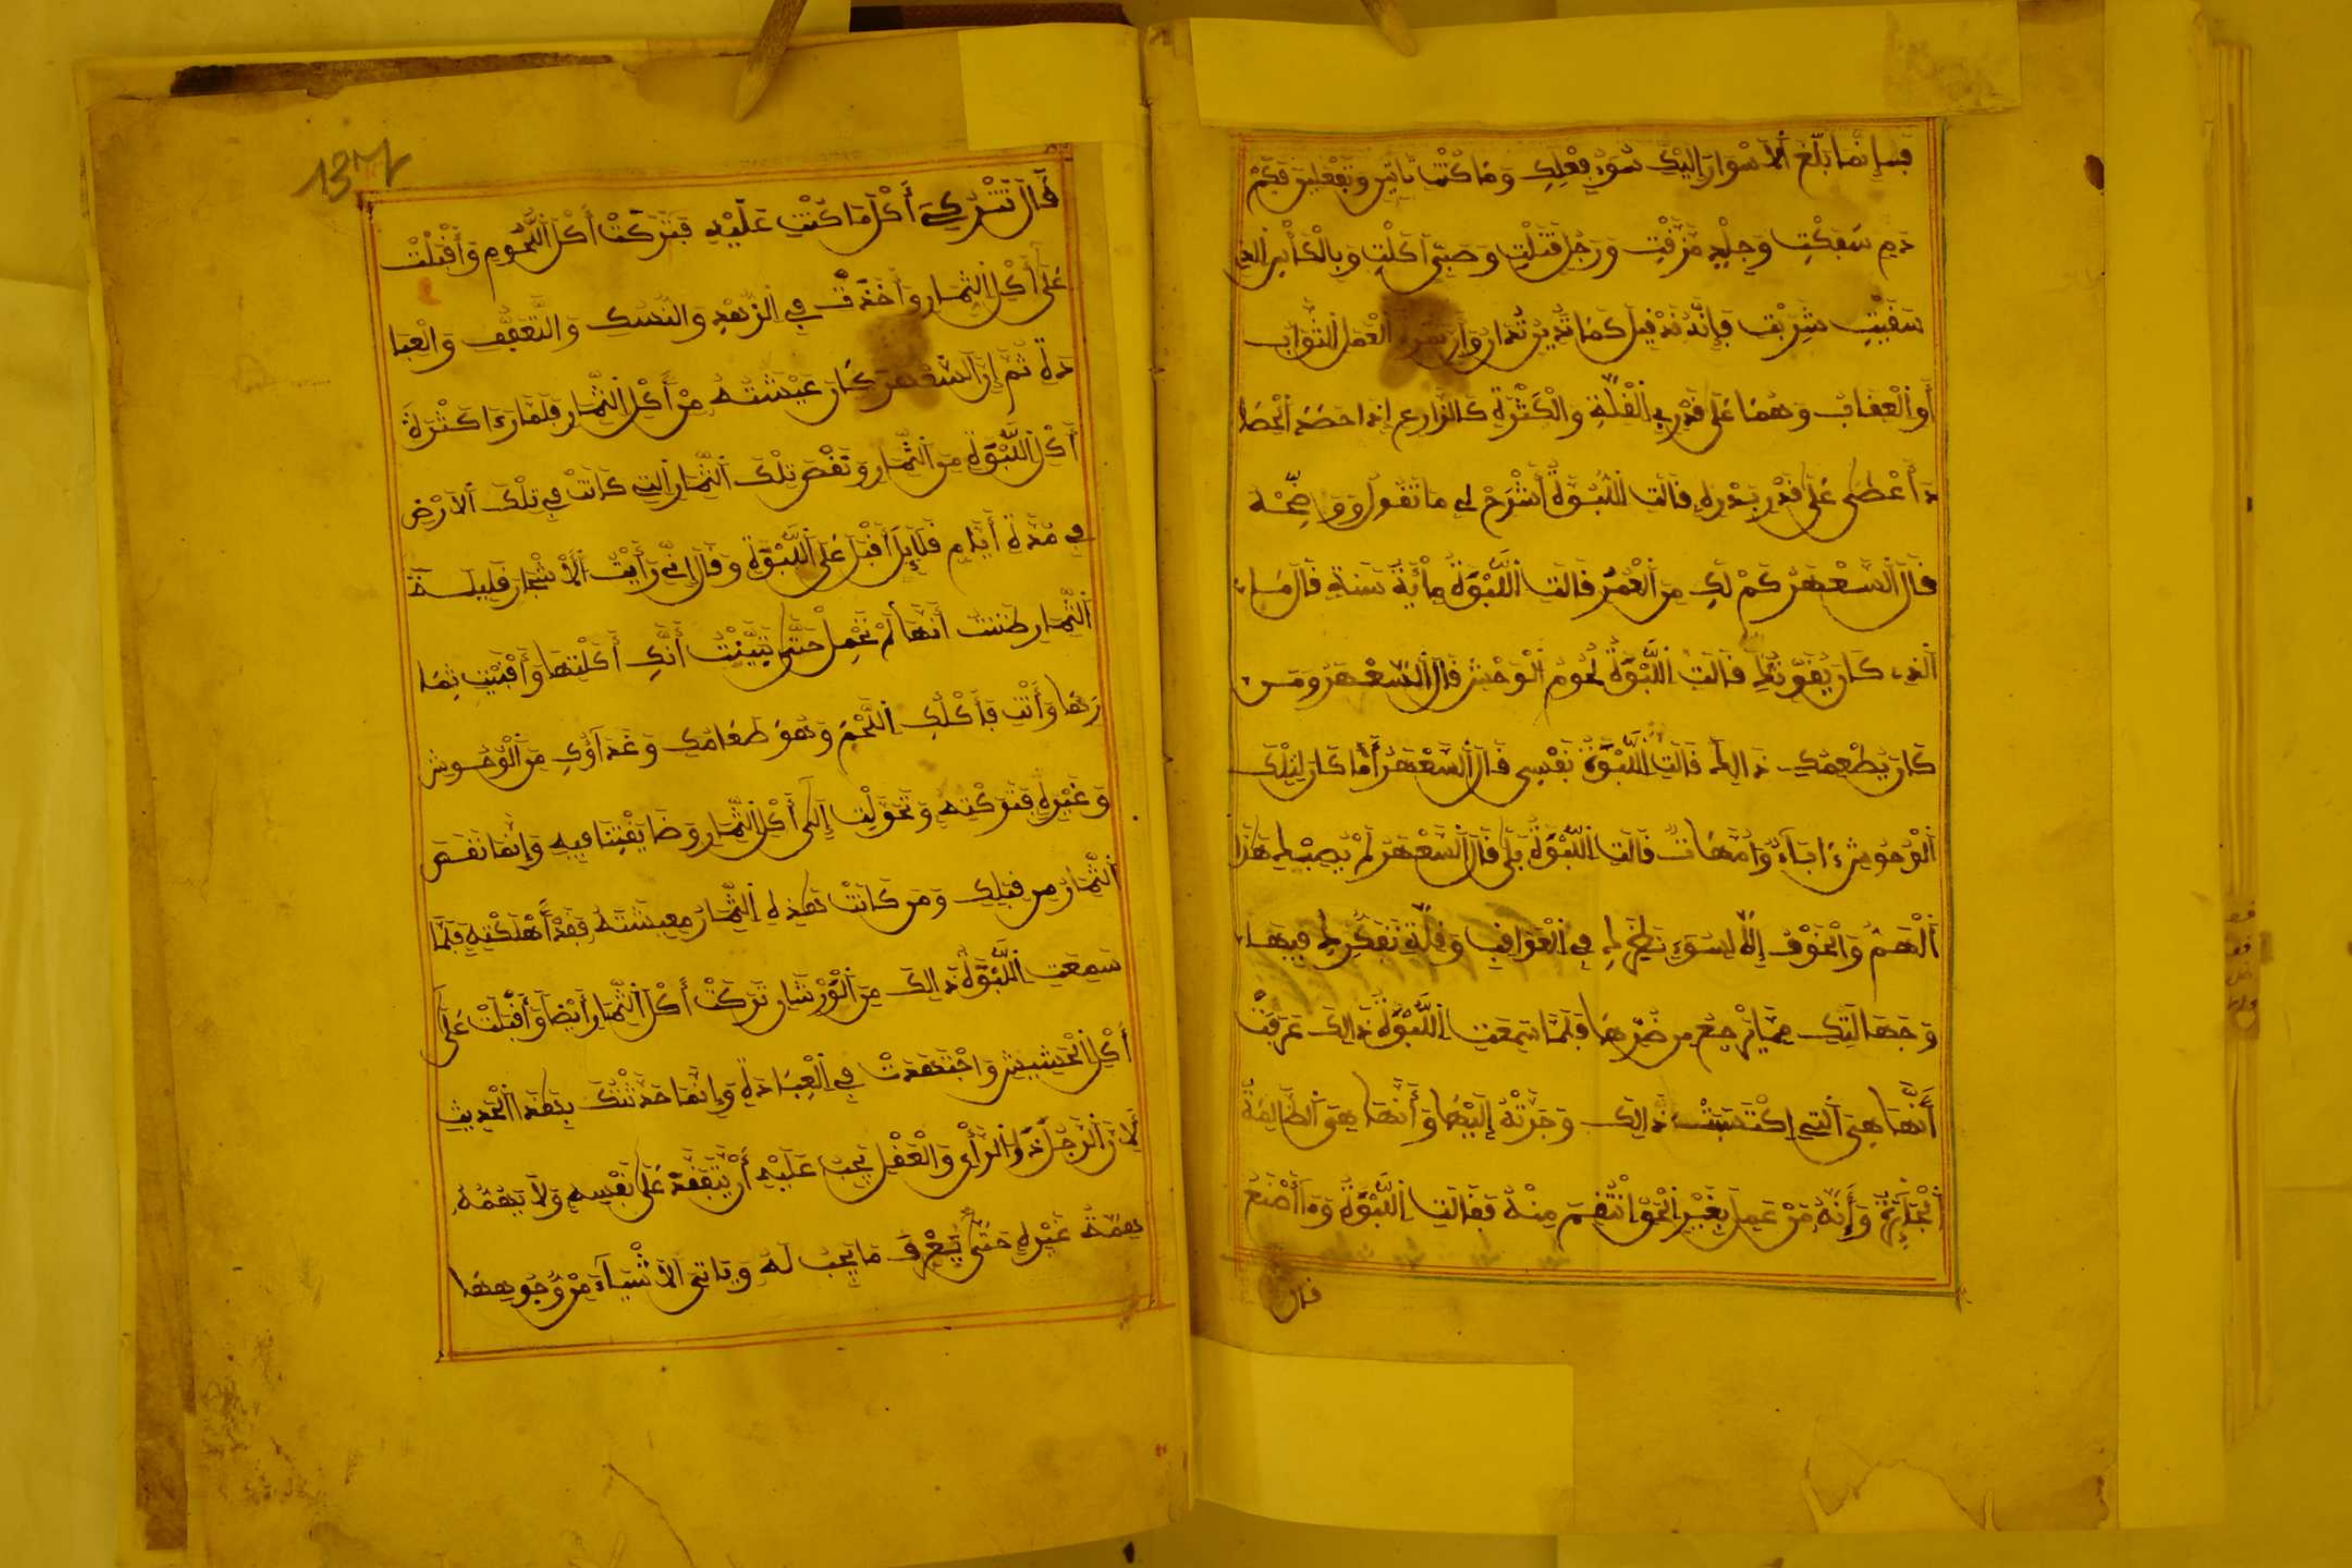 فيه إنما بلغ الأسوار إليك سوء فعلك وما كنت تأتين وتفعلين فكم
دم سفكت وجلد مزقت ورجل قتلت وصبي أكلت وبالكأس الذي
سقيت شربت فإنه قد قيل كما تدين تدان وأن ثمرة العمل الثواب
أو العقاب وهما على قدره في القلة والكثرة كالزارع إذا حصد الحصا
د أعطى على قدر بذره قالت اللبوة أشرح لي ما تقول ووضحه
قال السعهر كم لك من العمر قالت اللبوة مأية سنة قال ما
الذي كان يقوتك قالت اللبوة لحوم الوحش قال السعهر ومن
كان يطعمك ذالك قالت اللبوة نفسي قال السعهر أما كان لتلك
الوحوش ءاباء وأمهات قالت اللبوة بلى قال السعهر لم يصبك هذا
الهم والخوف إلا لسوء نظرك في العواقب وقلة تفكرك فيها
وجهالتك مما يرجع من ضرها فلما سمعت اللبوة ذالك عرفت
أنها هي التي اكتسبت ذالك وجرته إليها وأنها هي الظالمة
الجائرة وأنه من عمل بغير الحق انتقم منه فقالت اللبوة وما أصنع
قال
137
قال تتركي أكل ما كنت عليه فتركت أكل اللحوم وأقبلت
على أكل الثمار وأخذت في الزهد والنسك والتعفف والعبا
دة ثم إن السعهر كان عيشته من أكل الثمار فلما رءا كثرة
أكل اللبوة من الثمار ونقص تلك الثمار التي كانت في تلك الأرض
في مدة أيام قلايل أقبل على اللبوة وقال إني رأيت الأشجار قليلة
الثمار ظننت أنها لم تحمل حتى تبينت أنك أكلتها وأفنيت ثما
رها وأنت فأكلك اللحم وهو طعامك وغذاؤك من الوحوش
وغيره فتركته وتحولت إلى أكل الثمار وضايقتنا فيه وإنما نقص
الثمار من قبلك ومن كانت هذه الثمار معيشته فقد أهلكته فلما
سمعت اللبوة ذالك من الورشان تركت أكل الثمار أيضا وأقبلت على
أكل الحشيش واجتهدت في العبادة وإنما حدثتك بهذا الحديث
لأن الرجل ذو الرأي والعقل يجب عليه أن يتفقد على نفسه ولا يهمه
همة غيره حتى يعرف ما يجب له وياتي الأشياء من وجوهها